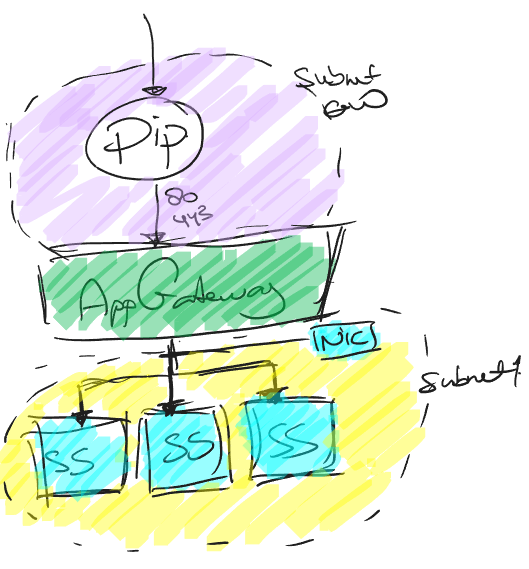 Subnet
GW
Pip
80
443
AppGateway
NIC
Subnet1
SS SS SS